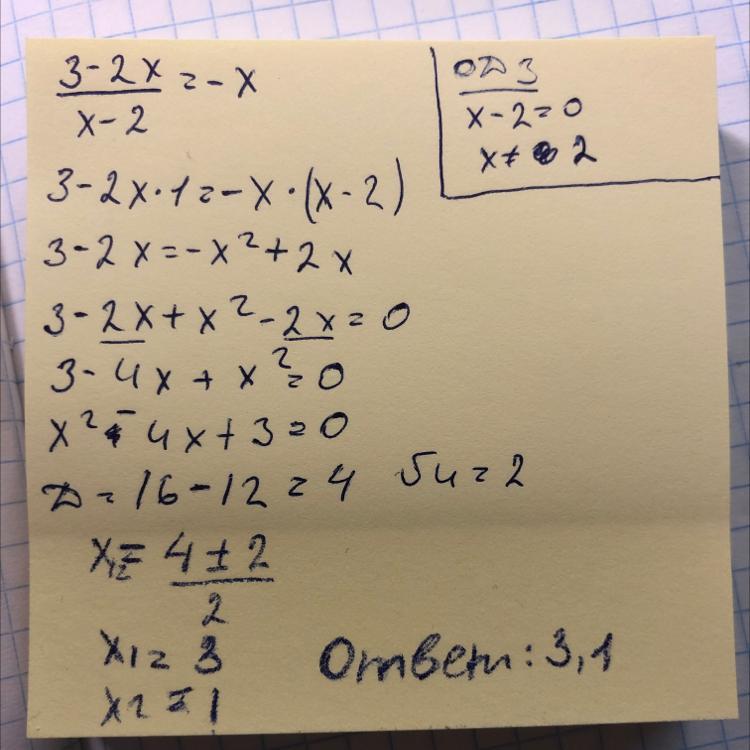 3-2x/x-2 = -x
ОДЗ
x-2=0
x≠ 2
3-2x·1=-x·(x-2)
3-2x=-x²+2x
3-2x+x²-2x=0
3-4x+x²=0
x²-4x+3=0
D=16-12=4 √4=2
x₁₂=4±2/2
x₁=3
x₂=1
Ответ: 3,1